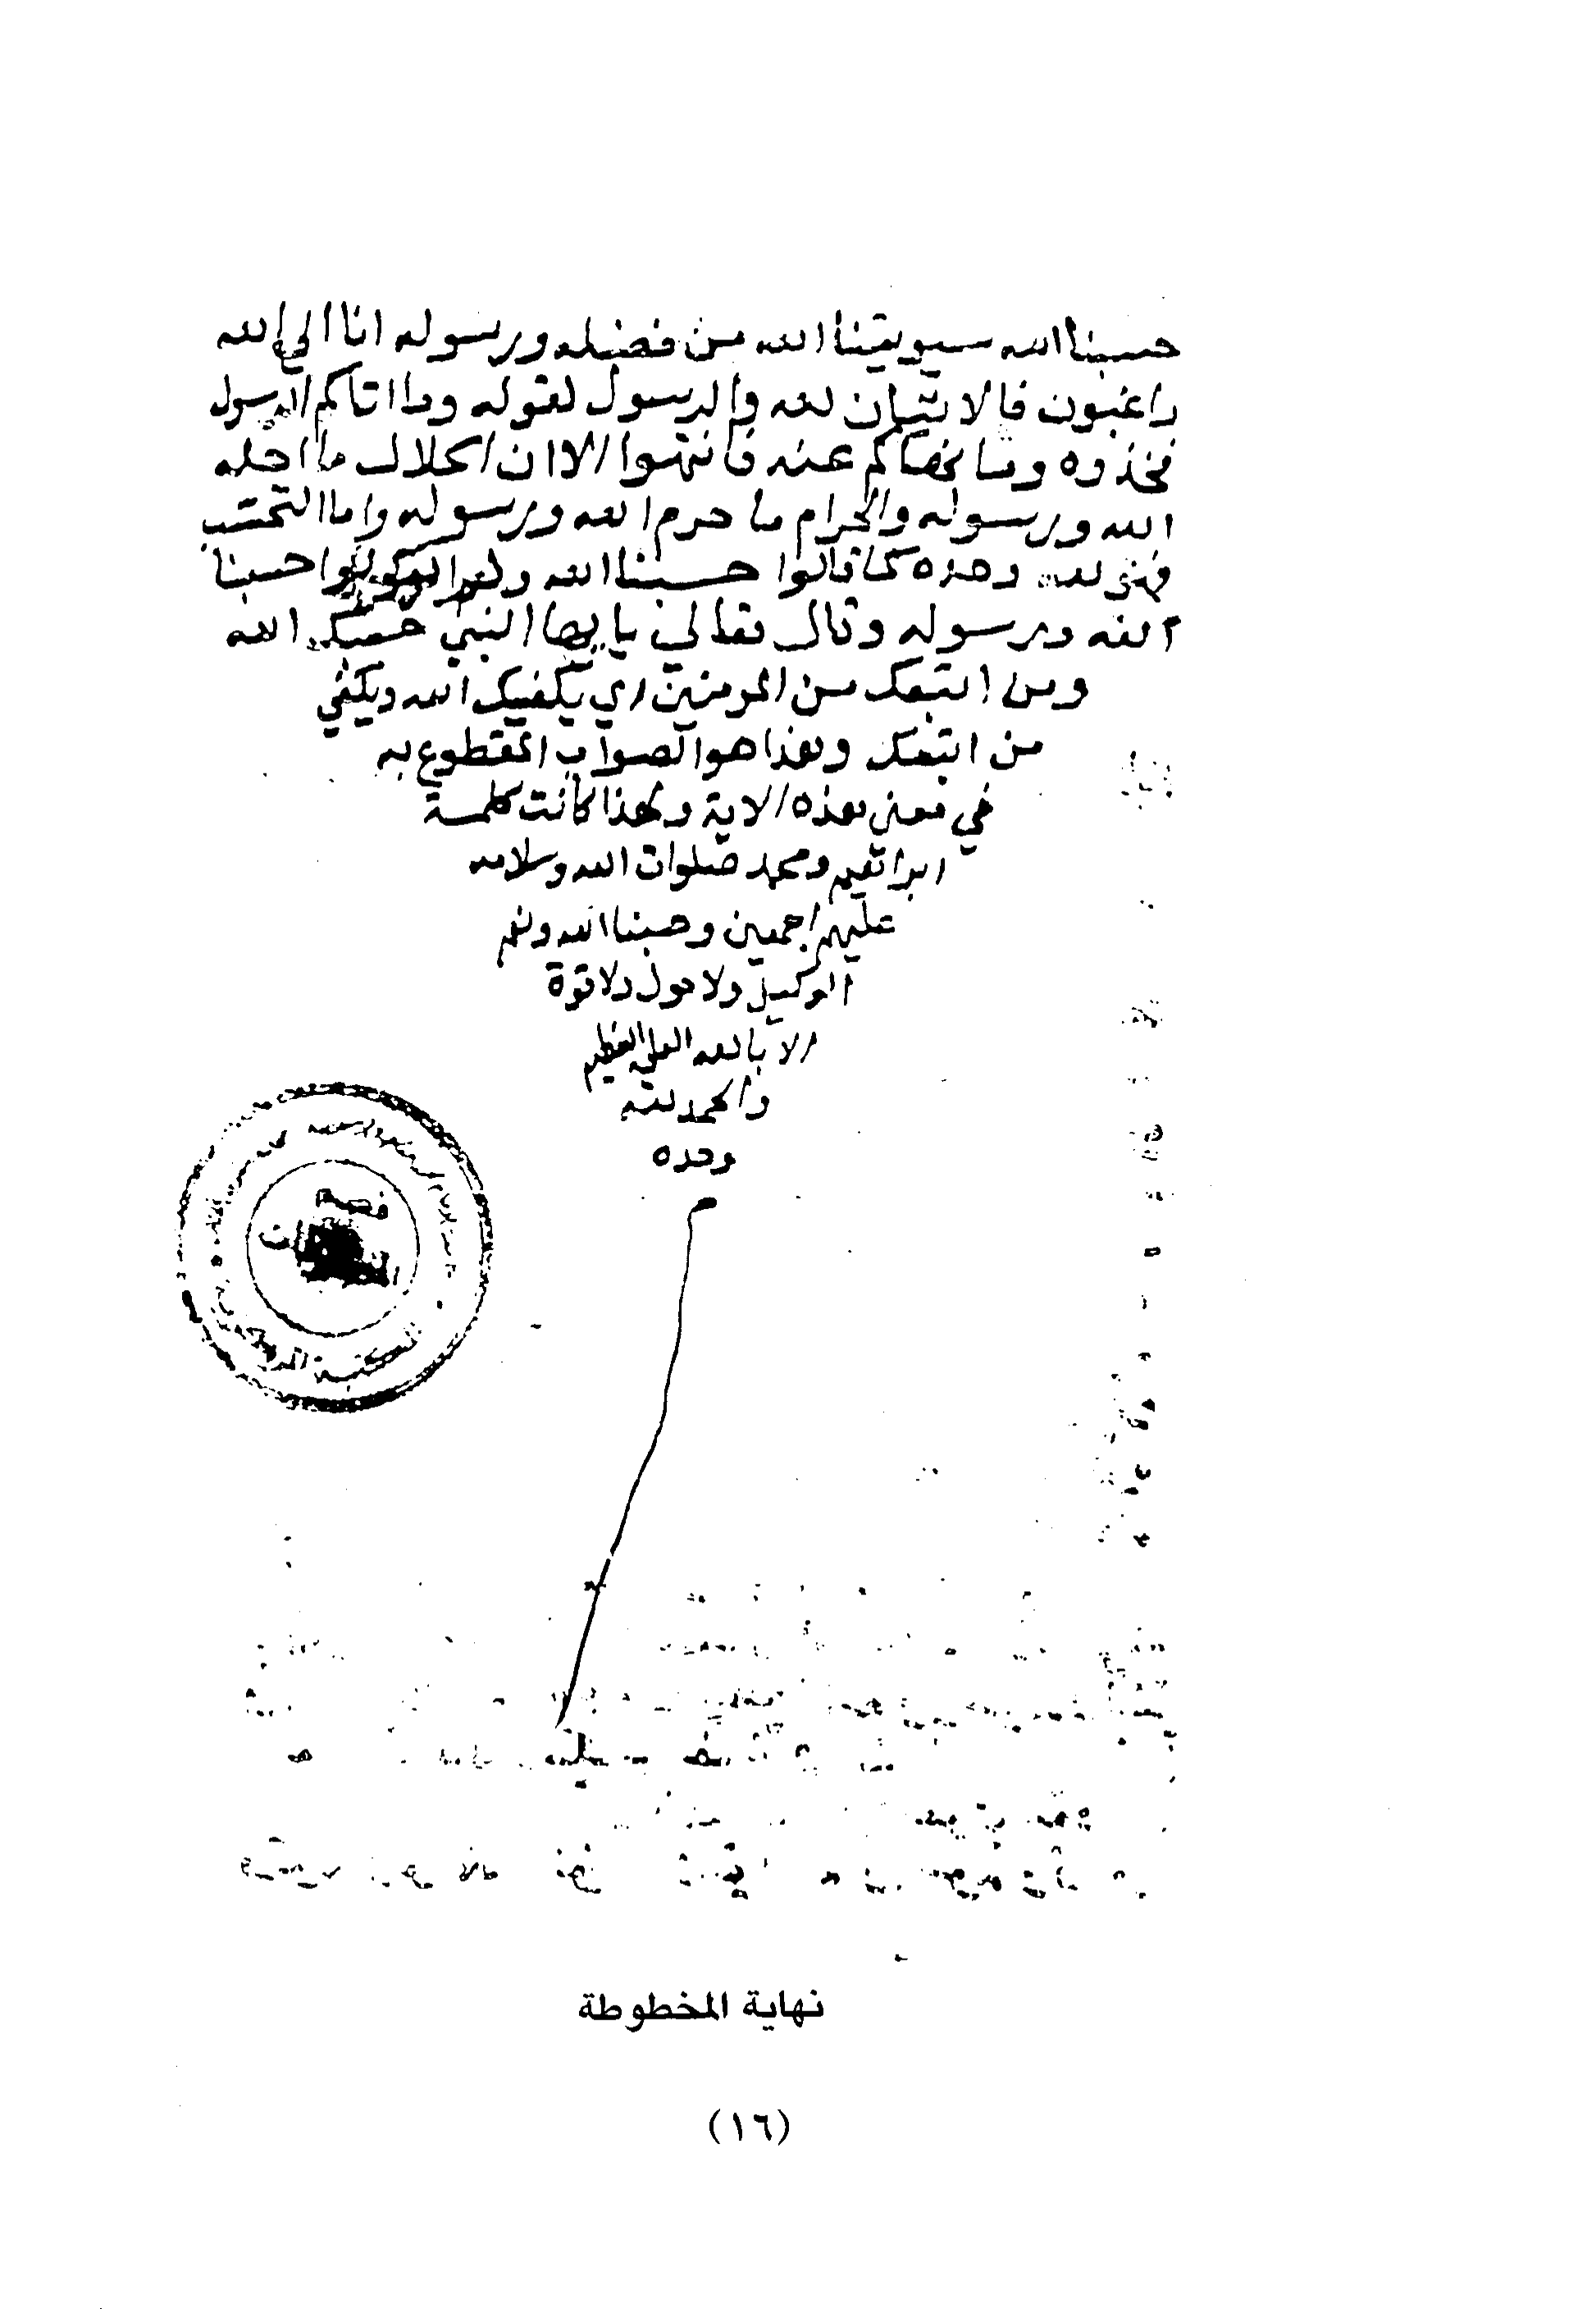 حسبنا الله سيوتينا الله من فضله ورسوله انا الي الله
راغبون فالاتيان لله والرسول لقوله وما اتاكم الرسول
فخذوه وما نهاكم عنه فانتهوا الا ان الحلال ما احله
الله ورسوله والحرام ما حرم الله ورسوله واما التحسب
فهي لله وحده كما قالوا حسبنا الله ولم يقولوا حسبنا
الله ورسوله وقال تعالي يا يها النبي حسبك الله
ومن اتبعك من المومنين اي يكفيك الله ويكفي
من اتبعك وهذا هو الصواب المقطوع به
في معني هذه الاية ولهذا كانت كلمة
ابراهيم ومحمد صلوات الله وسلامه
عليهم اجمعين وحسبنا الله ونعم
الوكيل ولا حول ولا قوة
الا بالله العلي العظيم
والحمد لله
وحده
قسم
المكتبة المركزية
نهاية المخطوطة
(١٦)